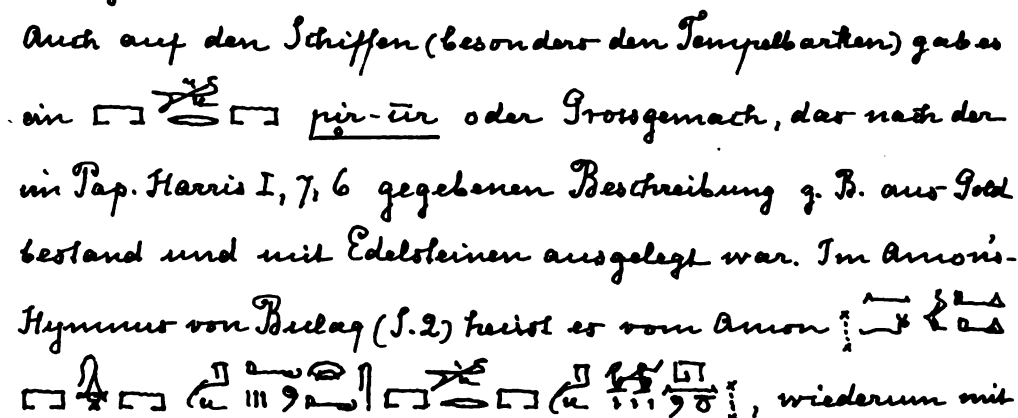 Auch auf den Schiffen (besonders den Tempelbarken) gab es
ein pir-ūr oder Grossgemach, das nach der
im Pap. Harris I, 7, 6 gegebenen Beschreibung z. B. aus Gold
bestand und mit Edelsteinen ausgelegt war. Im Amons-
Hymnus von Bulaq (S. 2) heisst es vom Amon
, wiederum mit